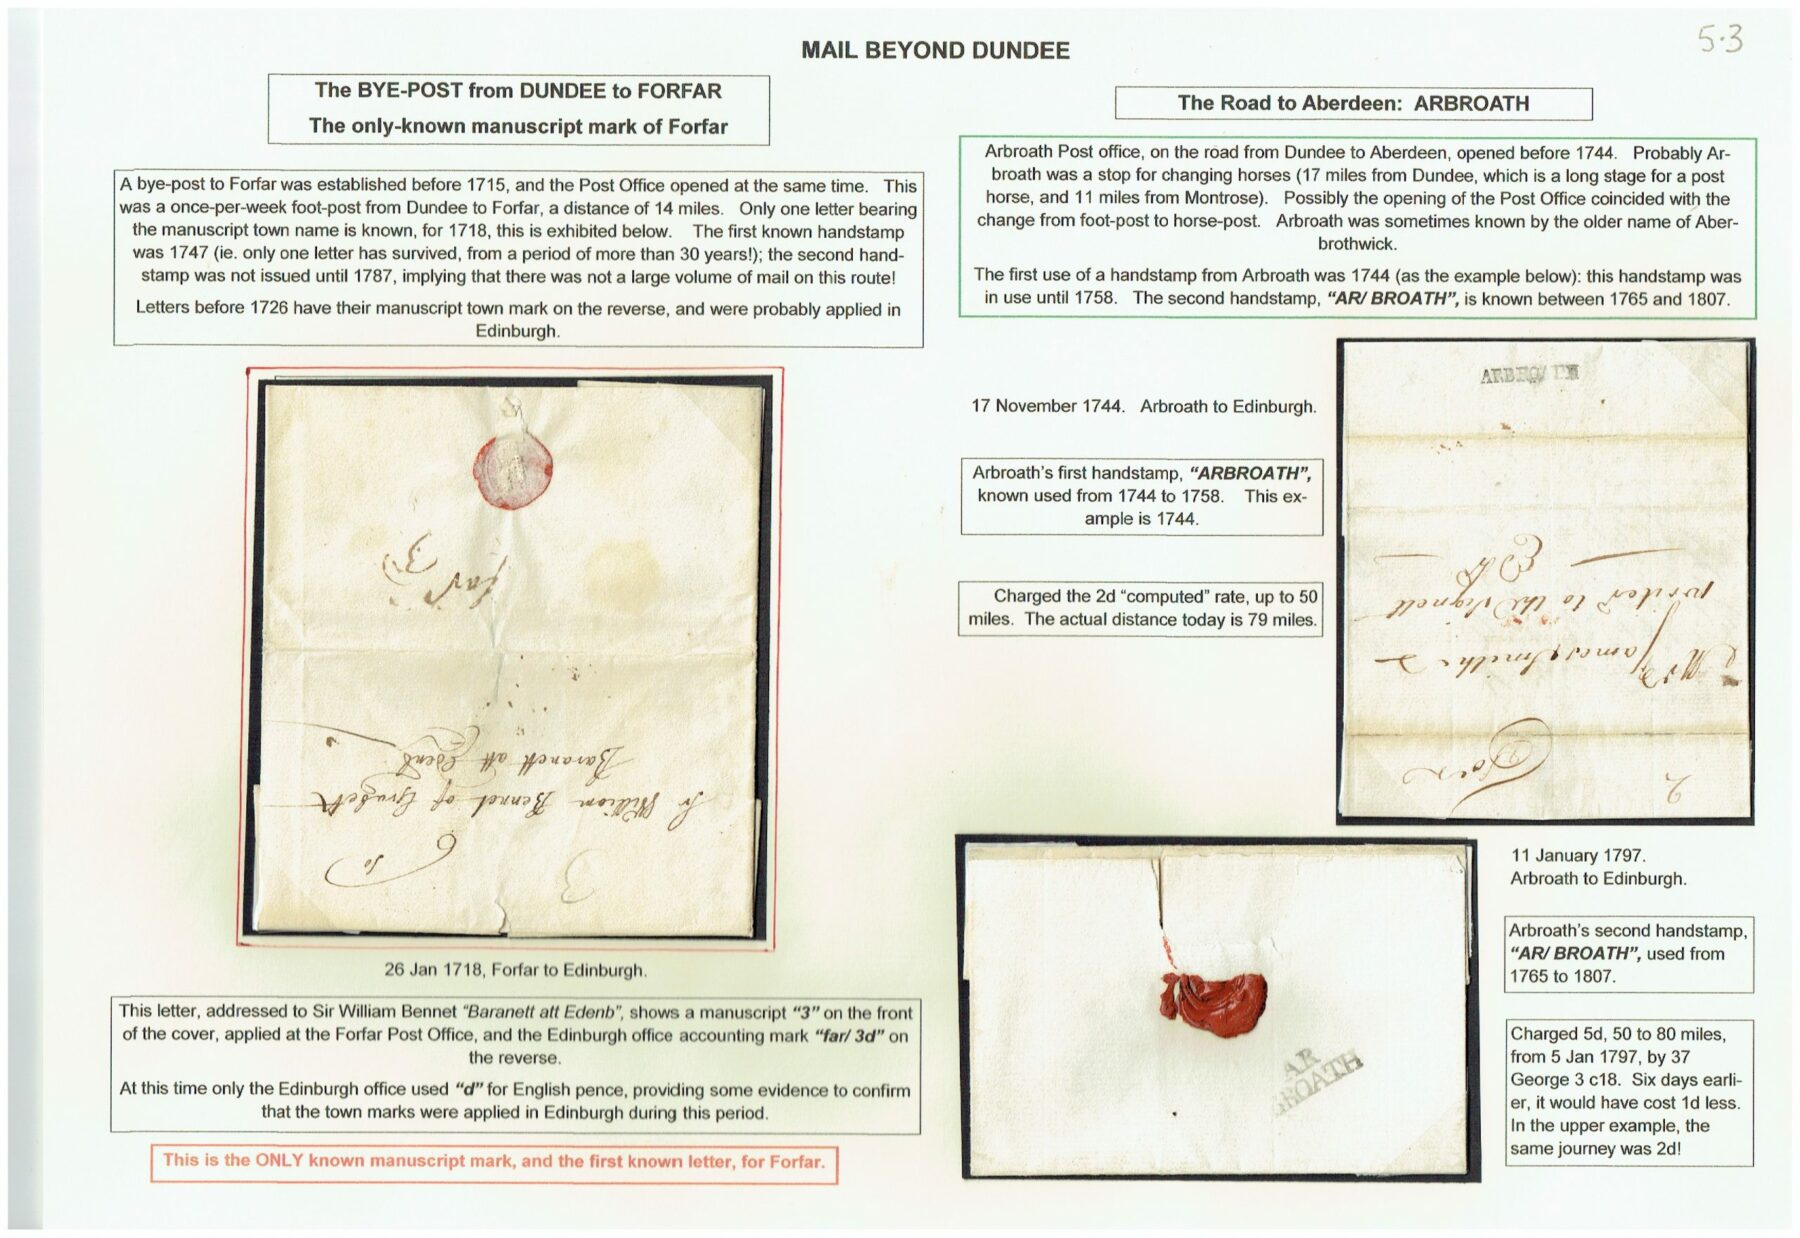 5.3
MAIL BEYOND DUNDEE
The BYE-POST from DUNDEE to FORFAR
The only-known manuscript mark of Forfar
A bye-post to Forfar was established before 1715, and the Post Office opened at the same time. This
was a once-per-week foot-post from Dundee to Forfar, a distance of 14 miles. Only one letter bearing
the manuscript town name is known, for 1718, this is exhibited below. The first known handstamp
was 1747 (ie. only one letter has survived, from a period of more than 30 years!); the second hand-
stamp was not issued until 1787, implying that there was not a large volume of mail on this route!
Letters before 1726 have their manuscript town mark on the reverse, and were probably applied in
Edinburgh.
far
3
Baranett att Edenb
Sr William Bennet of
To
3
26 Jan 1718, Forfar to Edinburgh.
This letter, addressed to Sir William Bennet "Baranett att Edenb", shows a manuscript "3" on the front
of the cover, applied at the Forfar Post Office, and the Edinburgh office accounting mark "far/ 3d" on
the reverse.
At this time only the Edinburgh office used "d" for English pence, providing some evidence to confirm
that the town marks were applied in Edinburgh during this period.
This is the ONLY known manuscript mark, and the first known letter, for Forfar.
The Road to Aberdeen: ARBROATH
Arbroath Post office, on the road from Dundee to Aberdeen, opened before 1744. Probably Ar-
broath was a stop for changing horses (17 miles from Dundee, which is a long stage for a post
horse, and 11 miles from Montrose). Possibly the opening of the Post Office coincided with the
change from foot-post to horse-post. Arbroath was sometimes known by the older name of Aber-
brothwick.
The first use of a handstamp from Arbroath was 1744 (as the example below): this handstamp was
in use until 1758. The second handstamp, "AR/ BROATH", is known between 1765 and 1807.
17 November 1744. Arbroath to Edinburgh.
Arbroath's first handstamp, "ARBROATH",
known used from 1744 to 1758. This ex-
ample is 1744.
Charged the 2d "computed" rate, up to 50
miles. The actual distance today is 79 miles.
ARBROATH
writer to the Signett
James Smith
2
11 January 1797.
Arbroath to Edinburgh.
Arbroath's second handstamp,
"AR/ BROATH", used from
1765 to 1807.
Charged 5d, 50 to 80 miles,
from 5 Jan 1797, by 37
George 3 c18. Six days earli-
er, it would have cost 1d less.
In the upper example, the
same journey was 2d!
AR
BROATH